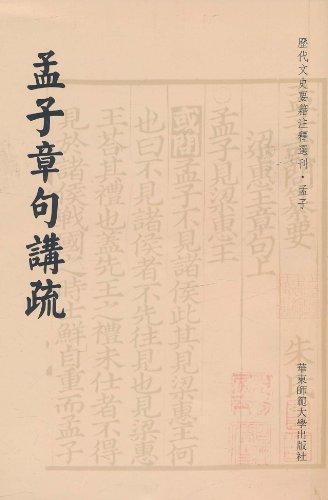 歷代文史要籍注釋選刊·孟子
孟子章句講疏
華東師範大學出版社
梁惠王章句上
孟子見梁惠王
孟子不見諸侯此其見梁惠王何
也曰不見諸侯者不先往見也見梁惠
王荅其禮也蓋先王之禮未仕者不得
見於諸侯戰國之時士鮮自重而孟子
朱氏